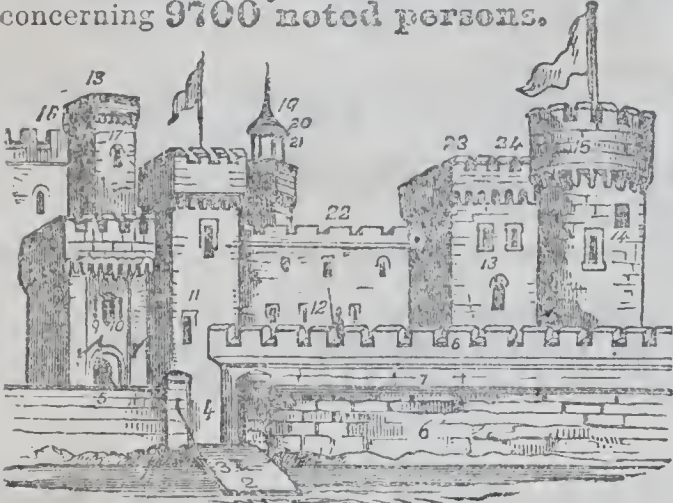 concerning 9700 noted persons.
18
19
16
17
20
21
15
23 24
22
14
13
11
12
9 10
6
7
5
4
6
3
2